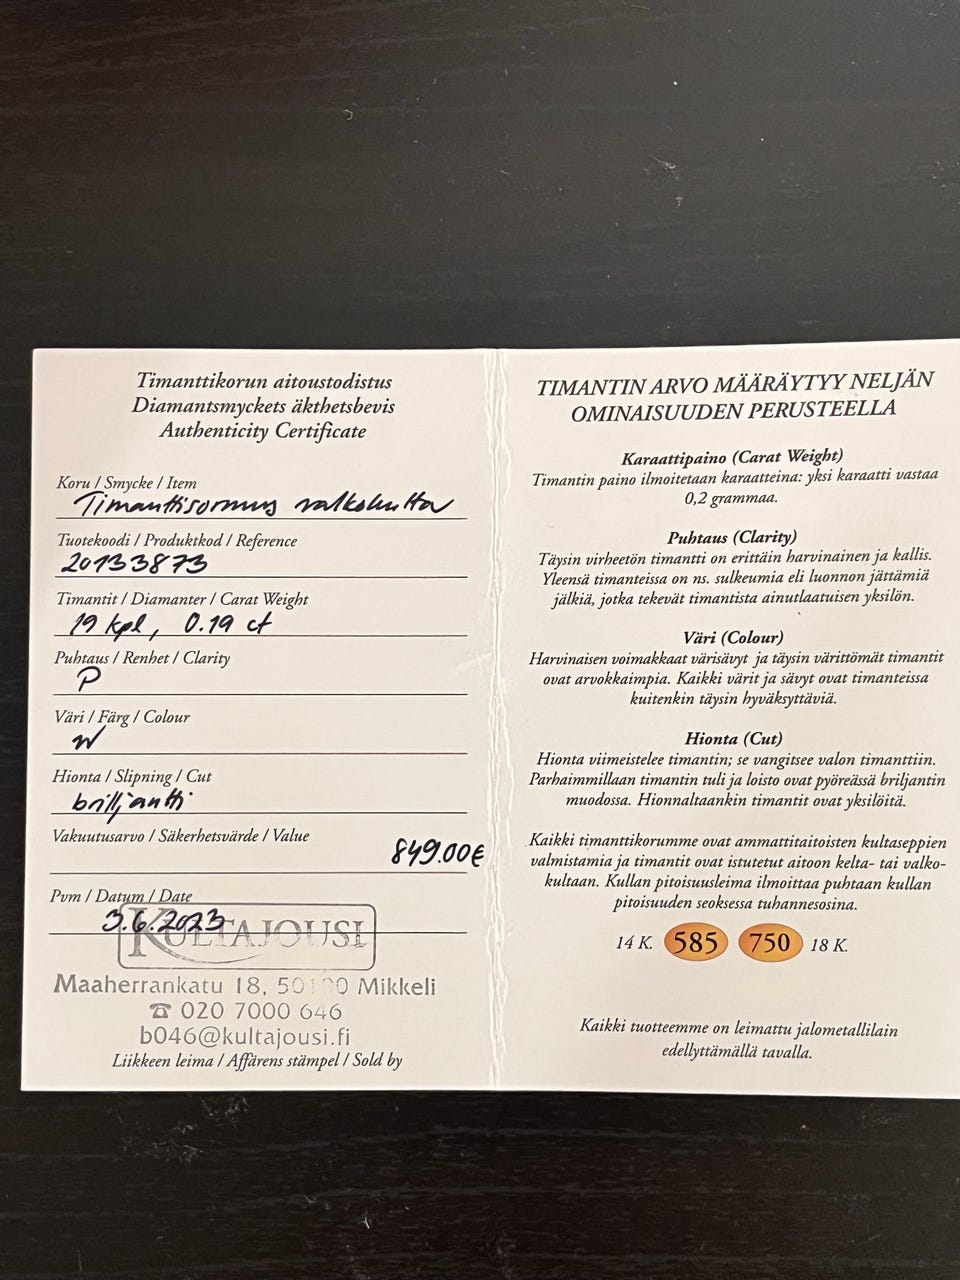 Timanttikorun aitoustodistus
Diamantsmyckets äkthetsbevis
Authenticity Certificate
Koru / Smycke / Item
Timanttisormus valkokulta
Tuotekoodi / Produktkod / Reference
20133873
Timantit / Diamanter / Carat Weight
19 kpl, 0.19 ct
Puhtaus / Renhet / Clarity
P
Väri / Färg / Colour
W
Hionta / Slipning / Cut
briljantti
Vakuutusarvo / Säkerhetsvärde / Value
849.00€
Pvm / Datum / Date
3.6.2023
KULTAJOUSI
Maaherrankatu 18, Mikkeli
☎ 020 7000 646
b046@kultajousi.fi
Liikkeen leima / Affärens stämpel / Sold by
TIMANTIN ARVO MÄÄRÄYTYY NELJÄN
OMINAISUUDEN PERUSTEELLA
Karaattipaino (Carat Weight)
Timantin paino ilmoitetaan karaatteina: yksi karaatti vastaa
0,2 grammaa.
Puhtaus (Clarity)
Täysin virheetön timantti on erittäin harvinainen ja kallis.
Yleensä timanteissa on ns. sulkeumia eli luonnon jättämiä
jälkiä, jotka tekevät timantista ainutlaatuisen yksilön.
Väri (Colour)
Harvinaisen voimakkaat värisävyt ja täysin värittömät timantit
ovat arvokkaimpia. Kaikki värit ja sävyt ovat timanteissa
kuitenkin täysin hyväksyttäviä.
Hionta (Cut)
Hionta viimeistelee timantin; se vangitsee valon timanttiin.
Parhaimmillaan timantin tuli ja loisto ovat pyöreässä briljantin
muodossa. Hionnaltaankin timantit ovat yksilöitä.
Kaikki timanttikorumme ovat ammattitaitoisten kultaseppien
valmistamia ja timantit ovat istutetut aitoon kelta- tai valko-
kultaan. Kullan pitoisuusleima ilmoittaa puhtaan kullan
pitoisuuden seoksessa tuhannesosina.
14 K. 585 750 18 K.
Kaikki tuotteemme on leimattu jalometallilain
edellyttämällä tavalla.